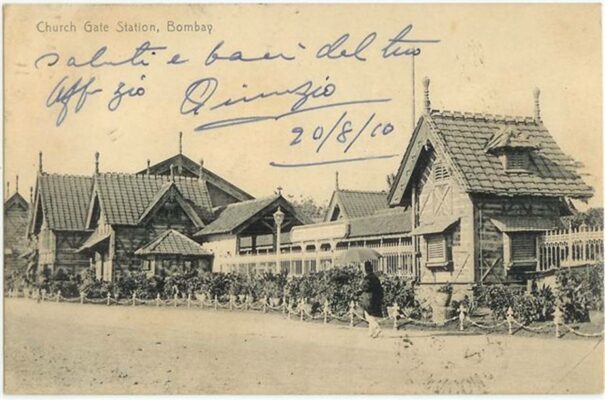 Church Gate Station, Bombay.
saluti e baci del tuo
Aff zio Quinzio
20/8/10